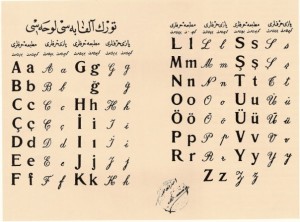 تورك آلفابه‌سی لوحه‌سی
مطبعه حرفلری یازی حرفلری مطبعه حرفلری یازی حرفلری
A a A a G g G g
B b B b Ğ ğ Ğ ğ
C c C c H h H h
Ç ç Ç ç İ i İ i
D d D d I ı I ı
E e E e J j J j
F f F f K k K k
مطبعه حرفلری یازی حرفلری مطبعه حرفلری یازی حرفلری
L l L l S s S s
M m M m Ş ş Ş ş
N n N n T t T t
O o O o U u U u
Ö ö Ö ö Ü ü Ü ü
P p P p V v V v
R r R r Y y Y y
Z z Z z